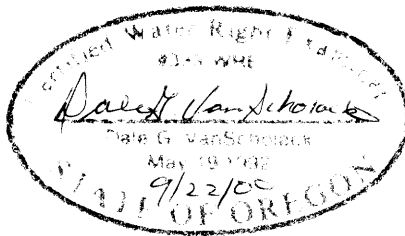 Certified Water Right Examiner
WRE
Dale G. VanScholack
Dale G. VanScholack
May 19 1992
9/22/00
STATE OF OREGON